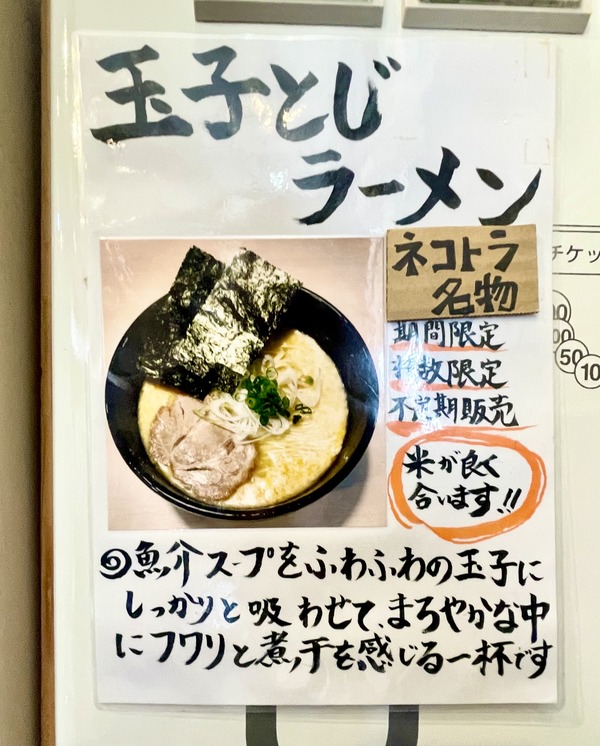 玉子とじ
ラーメン
ネコトラ
名物
期間限定
杯数限定
不定期販売
米が良く
合います!!
魚介スープをふわふわの玉子に
しっかりと吸わせて、まろやかな中
にフワリと煮干を感じる一杯です
チケッ
50
10